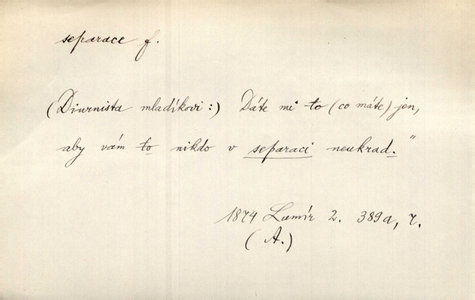 separace f.
(Diurnista mladíkovi:) Dáte mi to (co máte) jen,
aby vám to nikdo v separaci neukrad."
1874 Lumír 2. 389a, ř.
(A.)